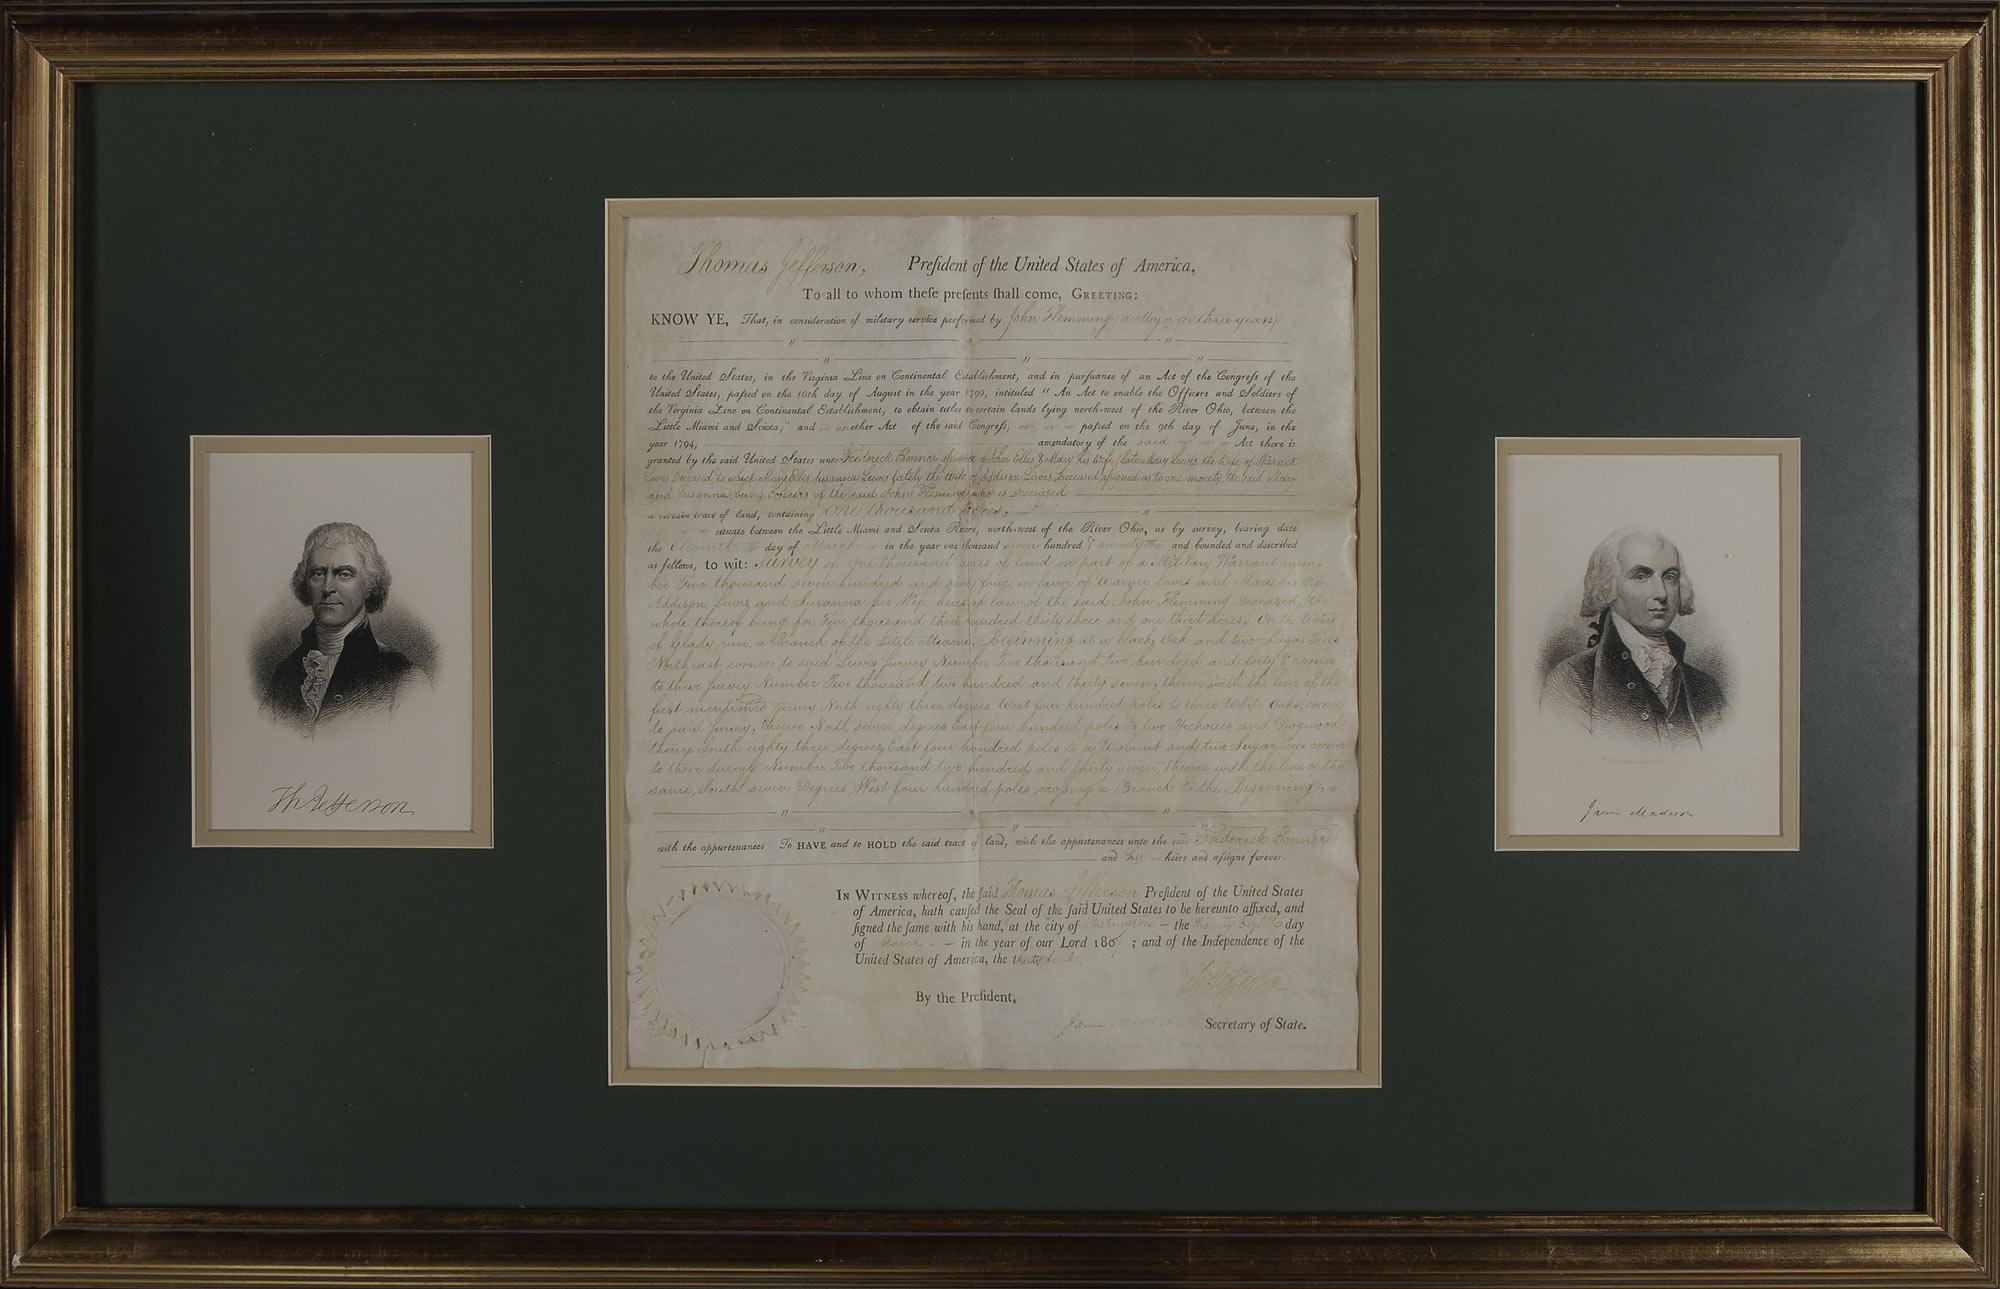 Thomas Jefferson, Preſident of the United States of America,
To all to whom theſe preſents ſhall come, GREETING:
KNOW YE, That, in conſideration of military service performed by John Flemming (a Major for three years)
to the United States, in the Virginia Line on Continental Establishment, and in purſuance of an Act of the Congreſs of the
United States, paſsed on the 10th day of August in the year 1790, intituled "An Act to enable the Officers and Soldiers of
the Virginia Line on Continental Establishment, to obtain titles to certain lands lying north-west of the River Ohio, between the
Little Miami and Sciota;" and another Act of the said Congreſs, paſsed on the 9th day of June, in the
year 1794, amendatory of the said Act there is
granted by the said United States unto Frederick Bonner of John Ellis & Mary his Wife (late Mary Lewis the Wife of Warner
Lewis Deceased, to which Mary Ellis, Susanna Lewis lately the Wife of Addison Lewis Deceased aſsigned as to one moiety the said Mary
and Susanna being Coheirs of the said John Fleming who is Deceased
a certain tract of land, containing One thousand acres,
situate between the Little Miami and Sciota Rivers, north-west of the River Ohio, as by survey, bearing date
the Eleventh day of March in the year one thousand seven hundred & ninety and bounded and described
as follows, to wit: Survey of One thousand acres of land on part of a Military Warrant num-
ber Two thousand seven hundred and in favor of Warner Lewis and Mary his Wife
Addison Lewis and Susanna his Wife heirs at law of the said John Flemming Deceased, (the
whole thereof being for Five thousand three hundred thirty three and one third acres) On the Waters
of Glady run, a Branch of the Little Miami, Beginning at a black Oak and two Sugar Trees
Northeast corner to said Lewis's Survey Number Two thousand two hundred and forty & corner
to their Survey Number Two thousand two hundred and thirty seven, thence with the line of the
first mentioned survey North eighty three degrees West four hundred poles to three White Oaks, corner
to said Survey, thence North seven degrees East four hundred poles to two Hickories and Dogwood
thence South eighty three degrees East four hundred poles to a Walnut and two Sugar Trees corner
to their Survey Number Two thousand two hundred and thirty seven, thence with the line of the
same, South seven Degrees West four hundred poles croſsing a Branch to the Beginning,
with the appurtenances: To HAVE and to HOLD the said tract of land, with the appurtenances unto the said Frederick Bonner
and his heirs and aſsigns forever.
IN WITNESS whereof, the ſaid Thomas Jefferson Preſident of the United States
of America, hath cauſed the Seal of the ſaid United States to be hereunto affixed, and
ſigned the ſame with his hand, at the city of Washington the Twenty Eighth day
of March in the year of our Lord 1807; and of the Independence of the
United States of America, the thirty first.
Th Jefferson
By the Preſident,
James Madison Secretary of State.
Th Jefferson
James Madison